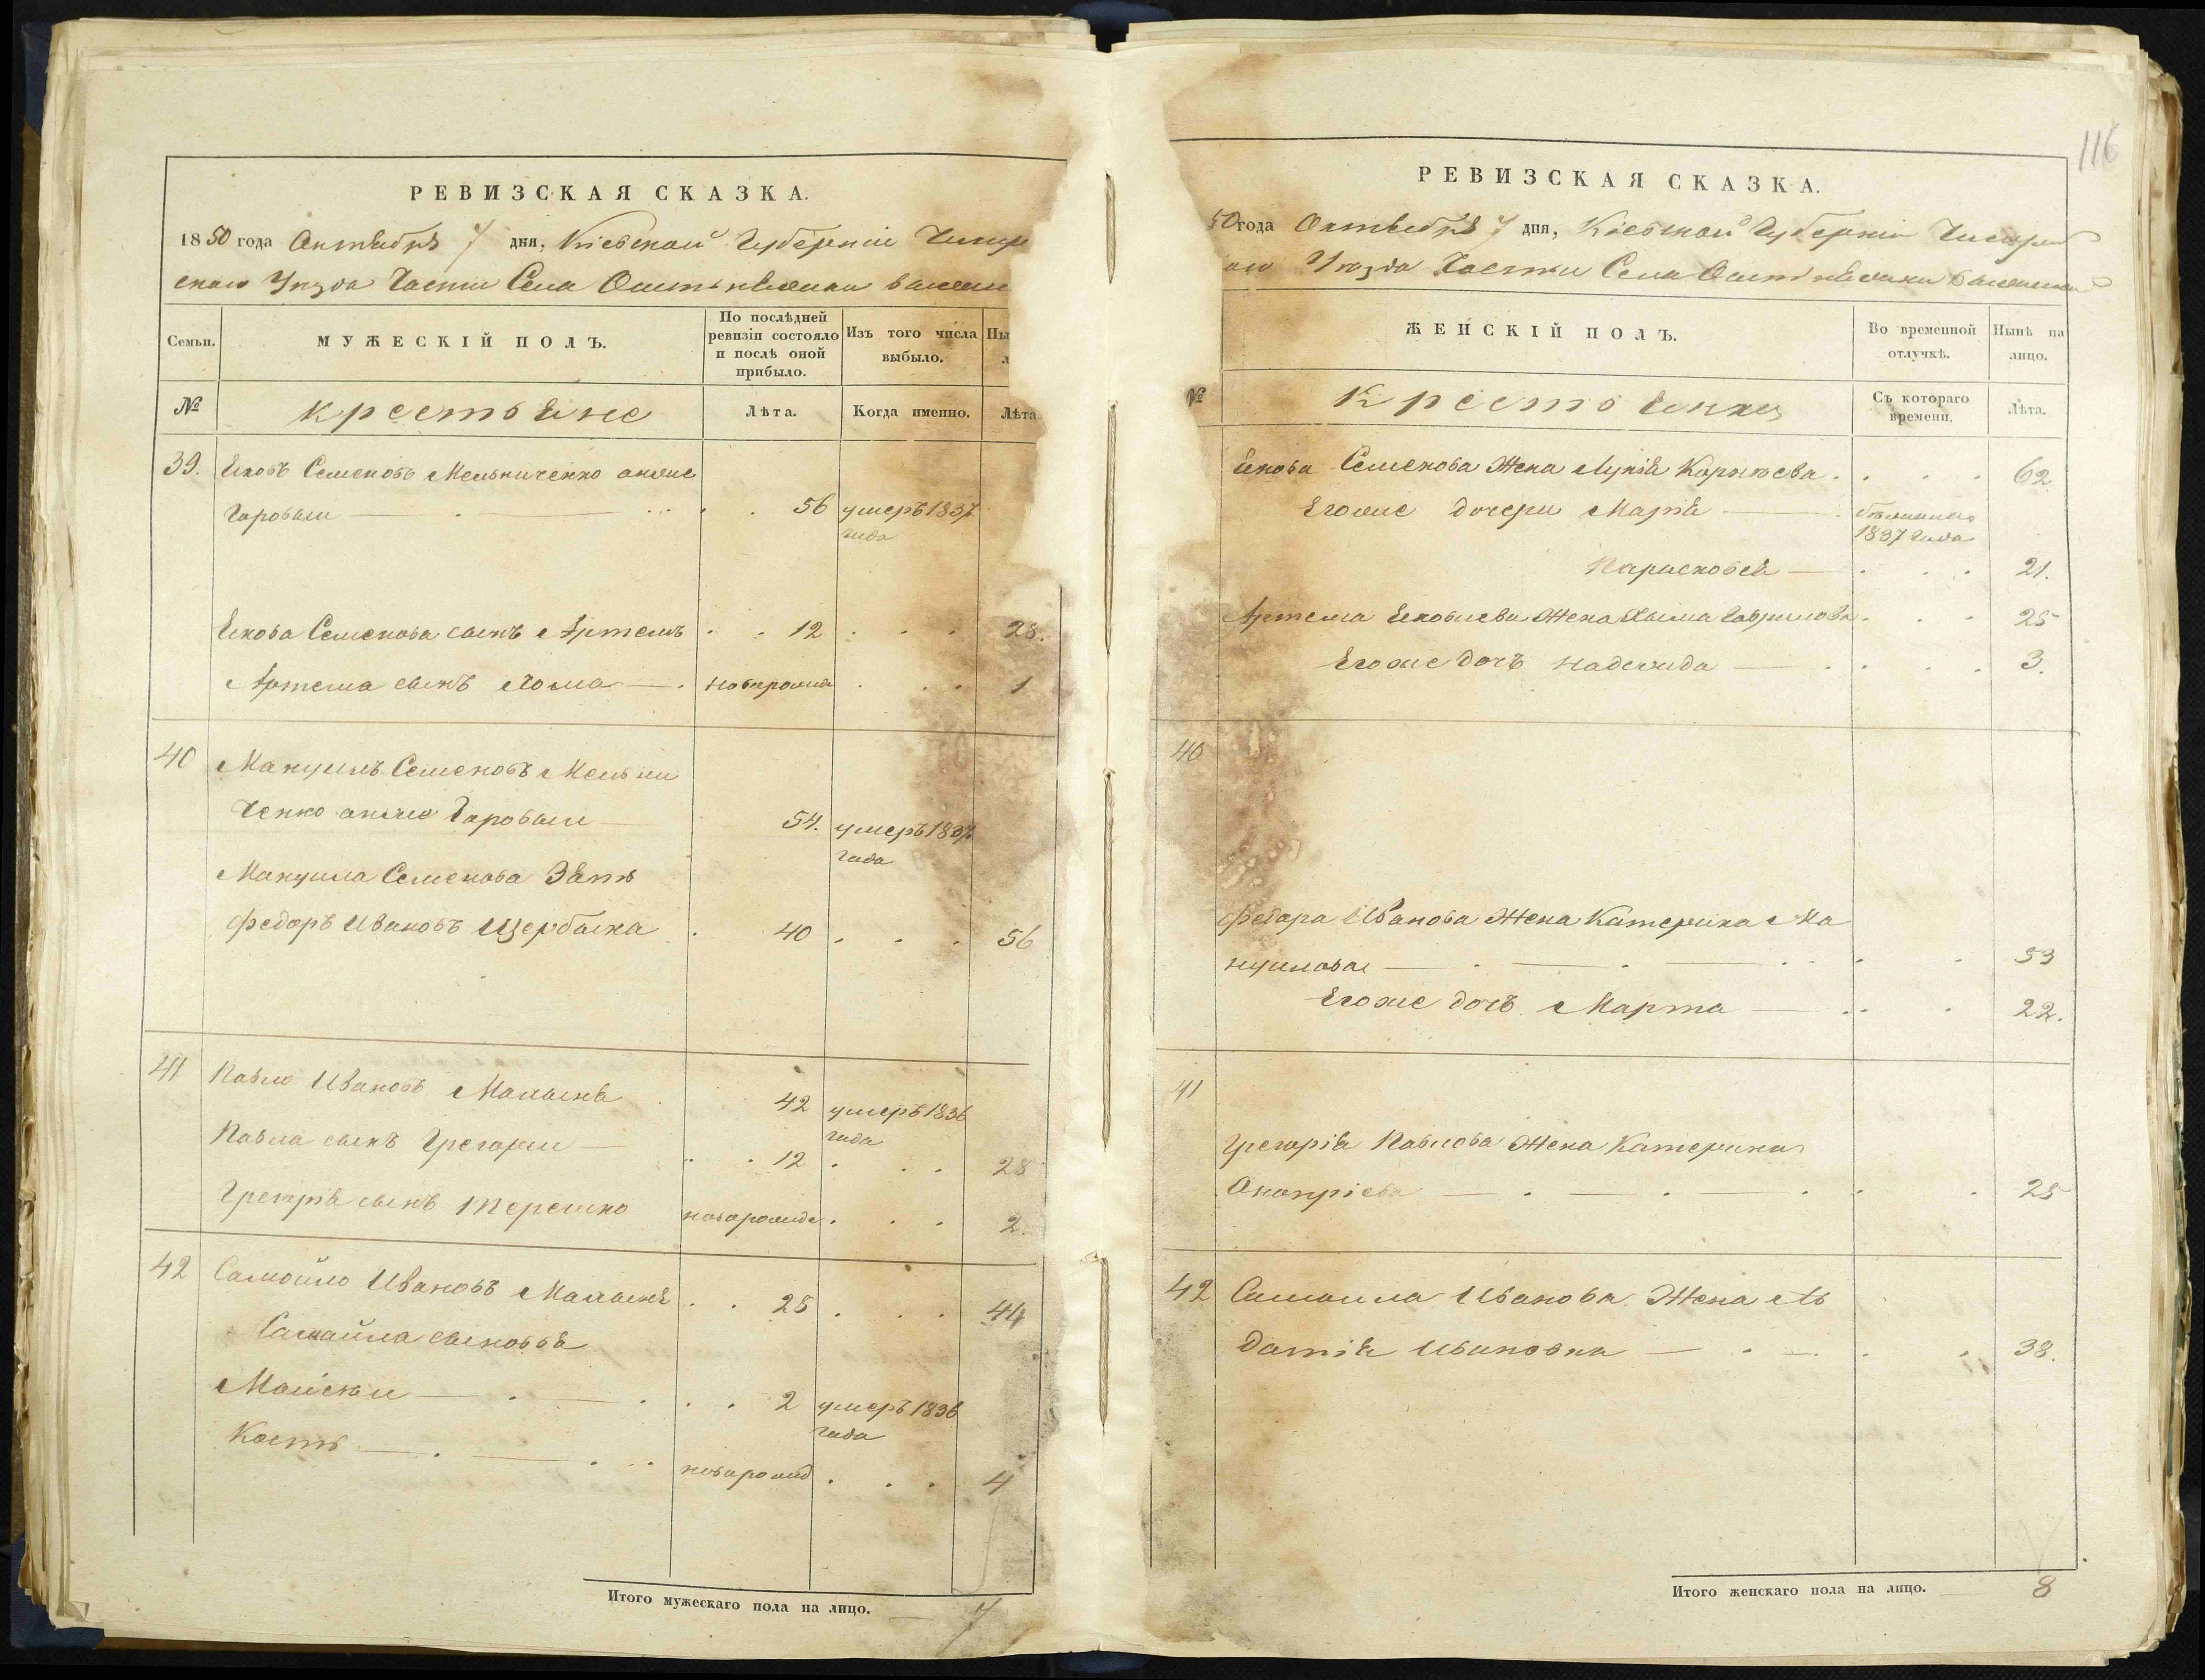 РЕВИЗСКАЯ СКАЗКА.
1850 года Октября 7 дня, Кіевской Губерніи Чигир
скаго Уезда Части Села
Семьи. МУЖЕСКІЙ ПОЛЪ. По послѣдней ревизіи состояло и послѣ оной прибыло. Изъ того числа выбыло. Ны
№ крестьяне Лѣта. Когда именно. Лѣта
39. Яковъ Семеновъ Мельниченко онже
Гаровы 56 умеръ 1837
года
Якова Семенова сынъ Артемъ 12 28.
Артема сынъ Хома новорожд 1
40 Мануилъ Семеновъ Мельни
ченко онже Гаровы 54. умеръ 1837
года
Мануила Семенова Зять
Федоръ Ивановъ Щербына 40 56
41 Павло Ивановъ 42 умеръ 1836
года
Павла сынъ Грегории 12 28
Грегорія сынъ Терешко новорожде 2.
42 Самойло Ивановъ 25 44
Самойла сыновья
Мойсы 2 умеръ 1836
года
Кость новорожд 4
Итого мужескаго пола на лицо. 7
116
РЕВИЗСКАЯ СКАЗКА.
50 года Октября 7 дня, Кіевской Губерніи Чигирин
аго Уезда Части Села
ЖЕНСКІЙ ПОЛЪ. Во временной отлучкѣ. Нынѣ на лицо.
№ Крестьянки Съ котораго времени. Лѣта.
Якова Семенова Жена Лукія Корнѣева 62
Егоже дочери Марія
1837 года
Парасковея 21.
Артема Яковлева Жена Гаврилова 25
Егоже дочь Надежда 3.
40
Федора Иванова Жена Катерина Ма
нуилова 53
Егоже дочь Марта 22.
41
Грегорія Павлова Жена Катерина
Онопріева 25
42 Самоила Иванова Жена Ев
докія Иванова 38.
Итого женскаго пола на лицо. 8